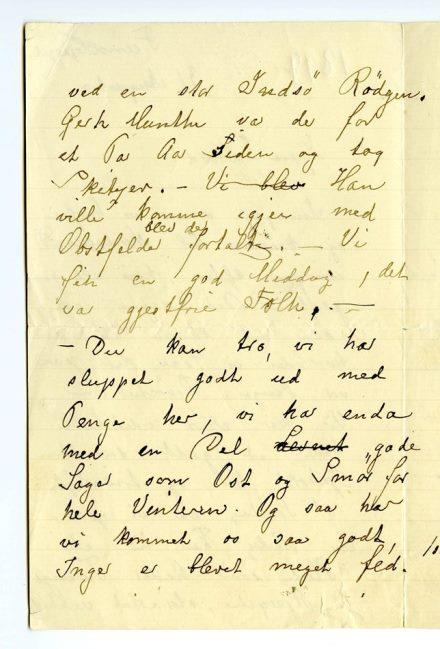 ved en stor Indsö Rödgen.
Gerh Munthe va de for
et Pa Aar Siden og tog
Skitser. – Vi blev Han
ville komme igjen med
blev det
Obstfelder fortalt. – Vi
fik en god Middag, det
va gjestfrie Folk. –
– Du kan tro, vi har
sluppet godt ud med
Penge her, vi har enda
med en Del "gode
Sager som Ost og Smör for
hele Vinteren. Og saa har
vi kommet os saa godt,
Inger er blevet meget fed.